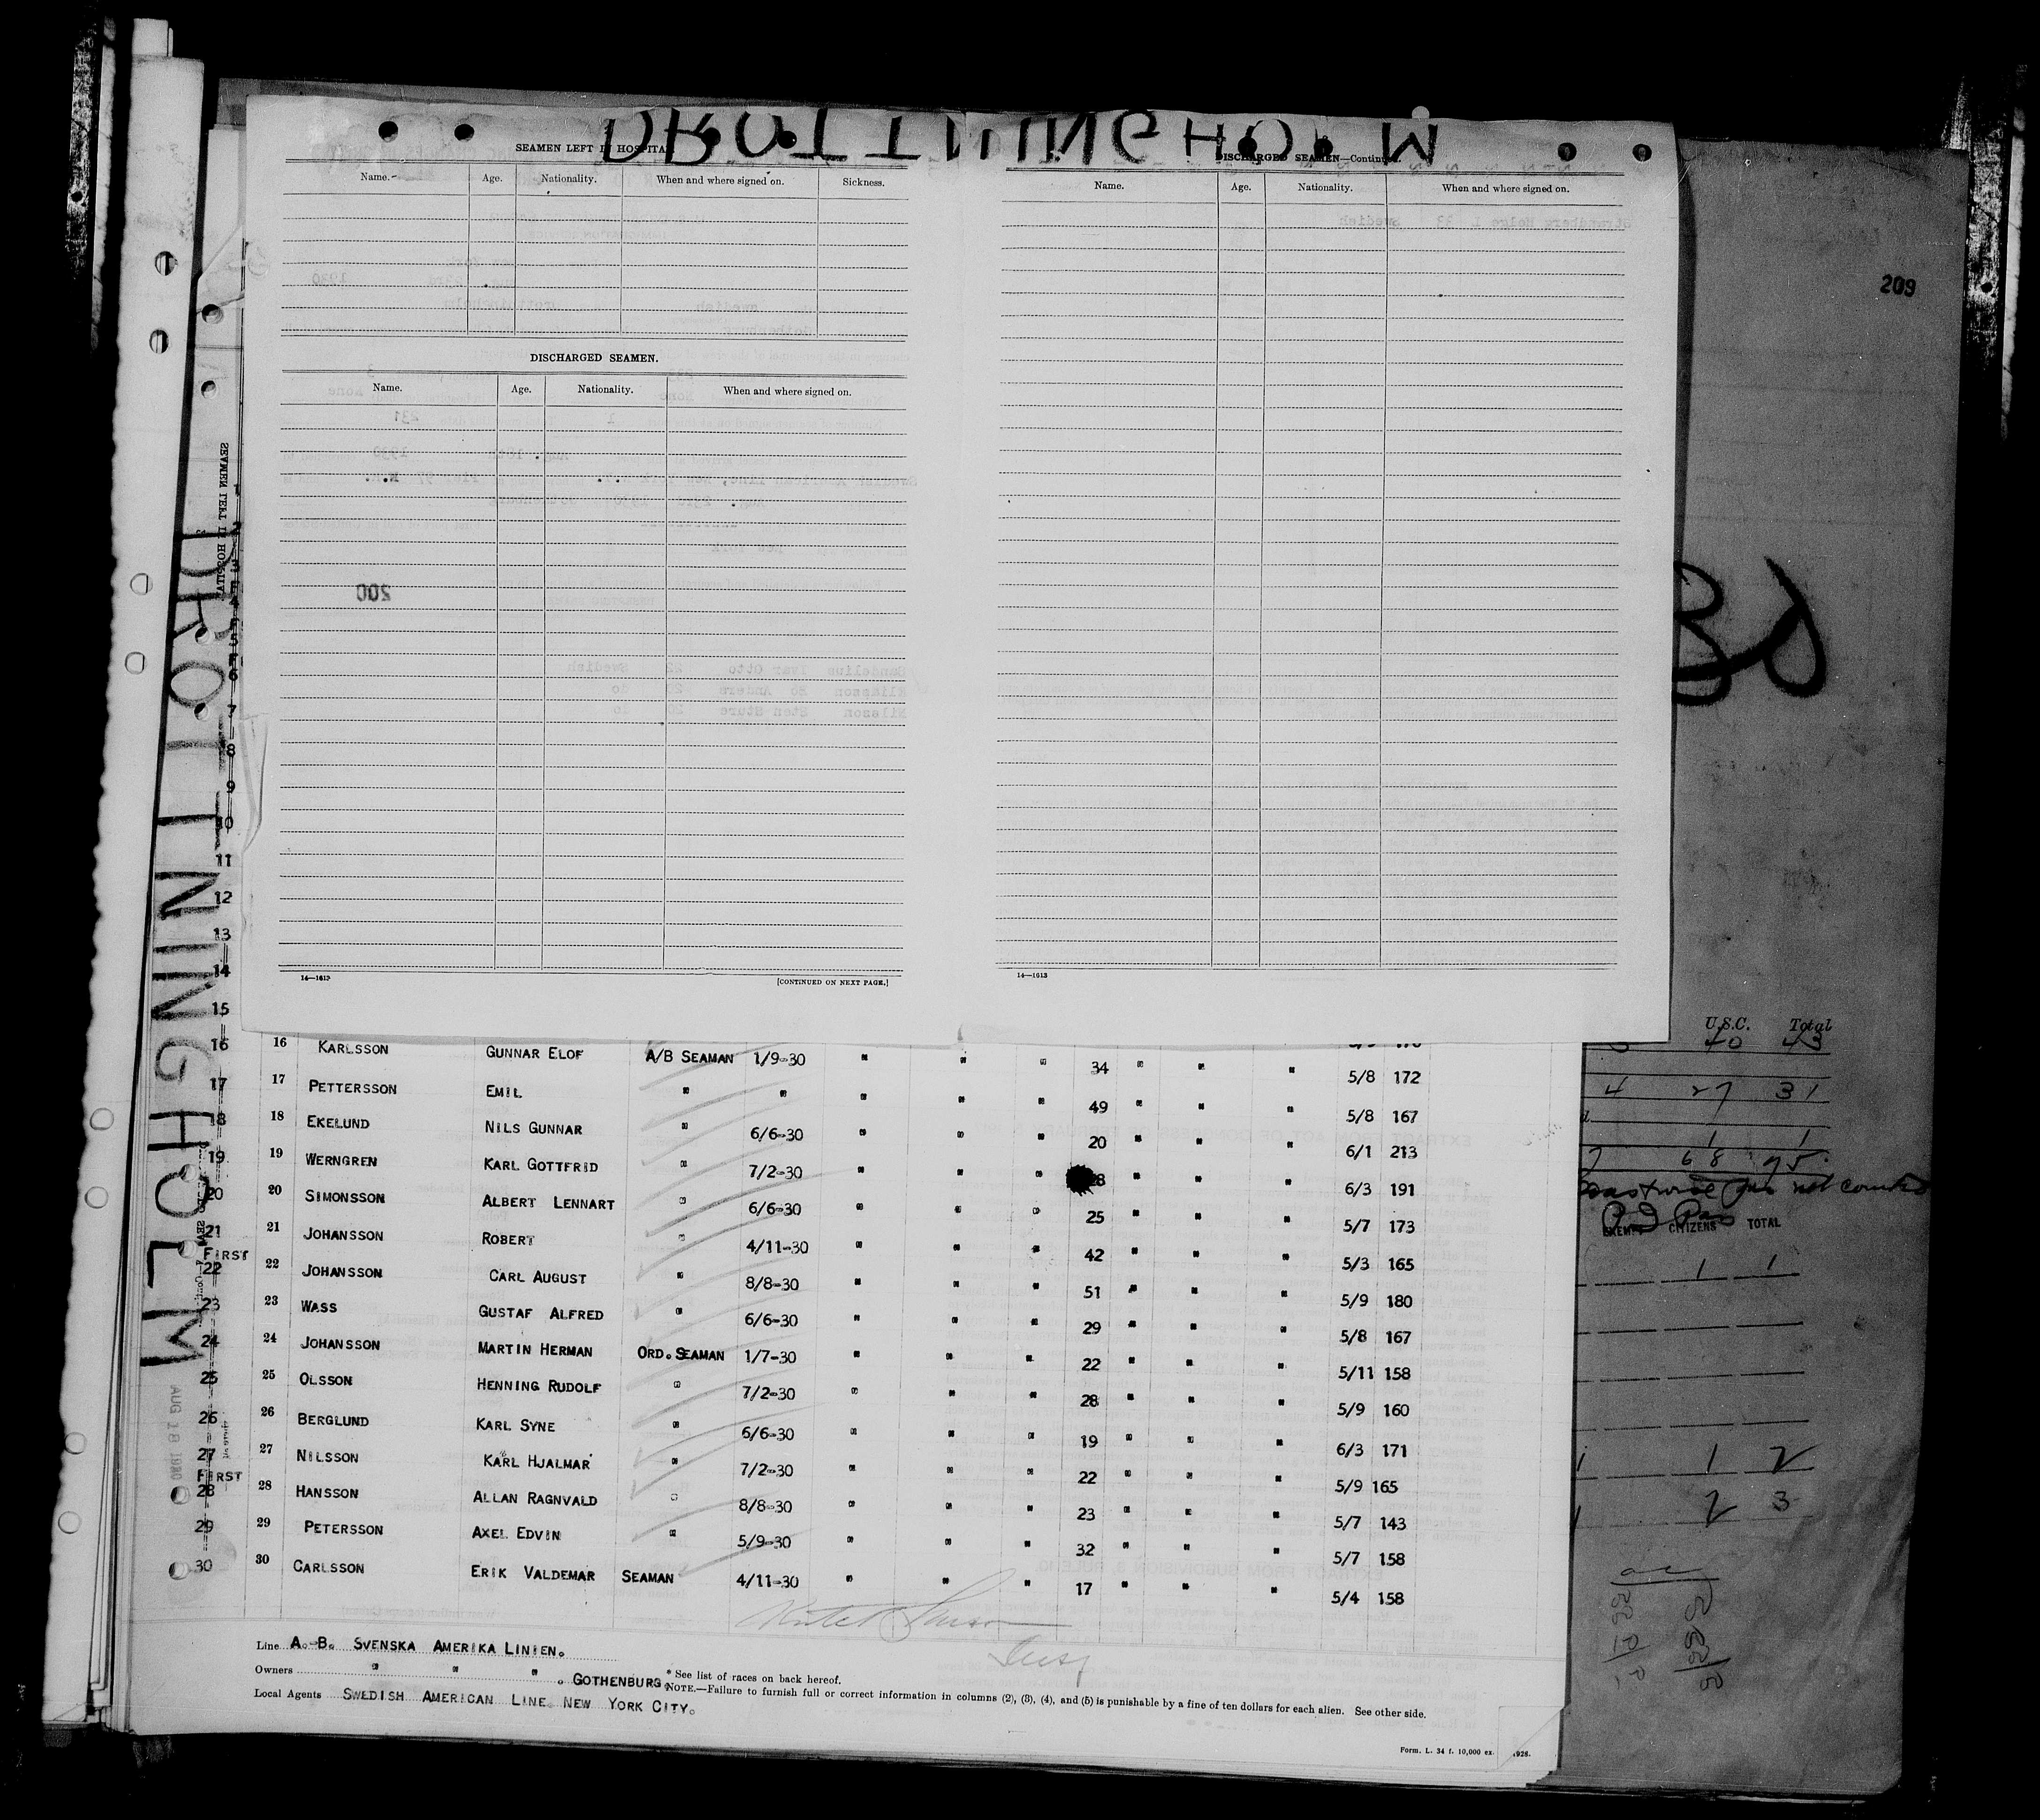 DROTTNINGHOLM
SEAMEN LEFT IN HOSPITAL
Name. Age. Nationality. When and where signed on. Sickness.
DISCHARGED SEAMEN.
Name. Age. Nationality. When and where signed on.
200
14—1613
[CONTINUED ON NEXT PAGE.]
DISCHARGED SEAMEN—Continued.
Name. Age. Nationality. When and where signed on.
14—1613
209
SEAMEN LEFT IN HOSPITAL
DROTTNINGHOLM
AUG 18 1930
7
8
9
10
11
12
13
14
15
16 16 KARLSSON GUNNAR ELOF A/B SEAMAN 1/9-30 " " " 34 " " " 5/8 172
17 17 PETTERSSON EMIL " " " " " 49 " " " 5/8 167
18 18 EKELUND NILS GUNNAR " 6/6-30 " " " 20 " " " 6/1 213
19 19 WERNGREN KARL GOTTFRID " 7/2-30 " " " 8 " " " 6/3 191
20 20 SIMONSSON ALBERT LENNART " 6/6-30 " " " 25 " " " 5/7 173
21 21 JOHANSSON ROBERT " 4/11-30 " " " 42 " " " 5/3 165
FIRST
22 22 JOHANSSON CARL AUGUST " 8/8-30 " " " 51 " " " 5/9 180
23 23 WASS GUSTAF ALFRED " 6/6-30 " " " 29 " " " 5/8 167
24 24 JOHANSSON MARTIN HERMAN ORD. SEAMAN 1/7-30 " " " 22 " " " 5/11 158
25 25 OLSSON HENNING RUDOLF " 7/2-30 " " " 28 " " " 5/9 160
26 26 BERGLUND KARL SYNE " 6/6-30 " " " 19 " " " 6/3 171
27 27 NILSSON KARL HJALMAR " 7/2-30 " " " 22 " " " 5/9 165
FIRST
28 28 HANSSON ALLAN RAGNVALD " 8/8-30 " " " 23 " " " 5/7 143
29 29 PETERSSON AXEL EDVIN " 5/9-30 " " " 32 " " " 5/7 158
30 30 CARLSSON ERIK VALDEMAR SEAMAN 4/11-30 " " " 17 " " " 5/4 158
Line A.-B. SVENSKA AMERIKA LINIEN.
Owners " " " . GOTHENBURG.
Local Agents SWEDISH AMERICAN LINE NEW YORK CITY.
* See list of races on back hereof.
NOTE.—Failure to furnish full or correct information in columns (2), (3), (4), and (5) is punishable by a fine of ten dollars for each alien. See other side.
Form. L. 34 f. 10,000 ex. 1928.
U.S.C. Total
40 43
4 27 31
1 1
68 95
not counted
EXEMPT CITIZENS TOTAL
1 1
1 1 2
1 2 3